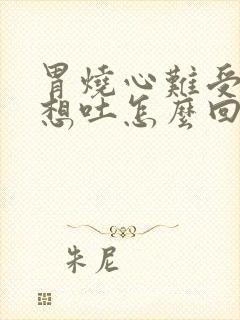 胃燒心難受
想吐怎麼回
朱尼